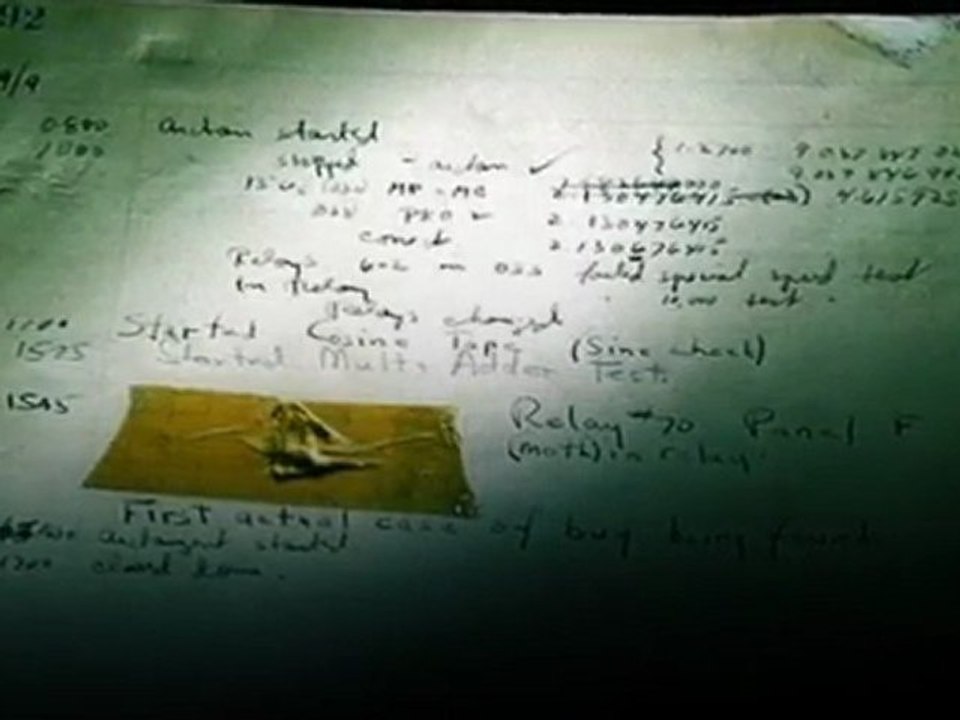 9/9
0800 Antan started
1000 stopped - antan ✓ { 1.2700 9.037 847 02
9.037 846 95
13"uc (032) MP - MC 2.130476415 4.615925
033 PRO 2 2.130476415
correct 2.130676415
Relays 6-2 in 033 failed special speed test
in Relay 10,000 test .
Relays changed
1100 Started Cosine Tape (Sine check)
1525 Started Mult + Adder Test.
1545 Relay #70 Panel F
(moth) in relay.
First actual case of bug being found.
antangent started
1700 closed down .